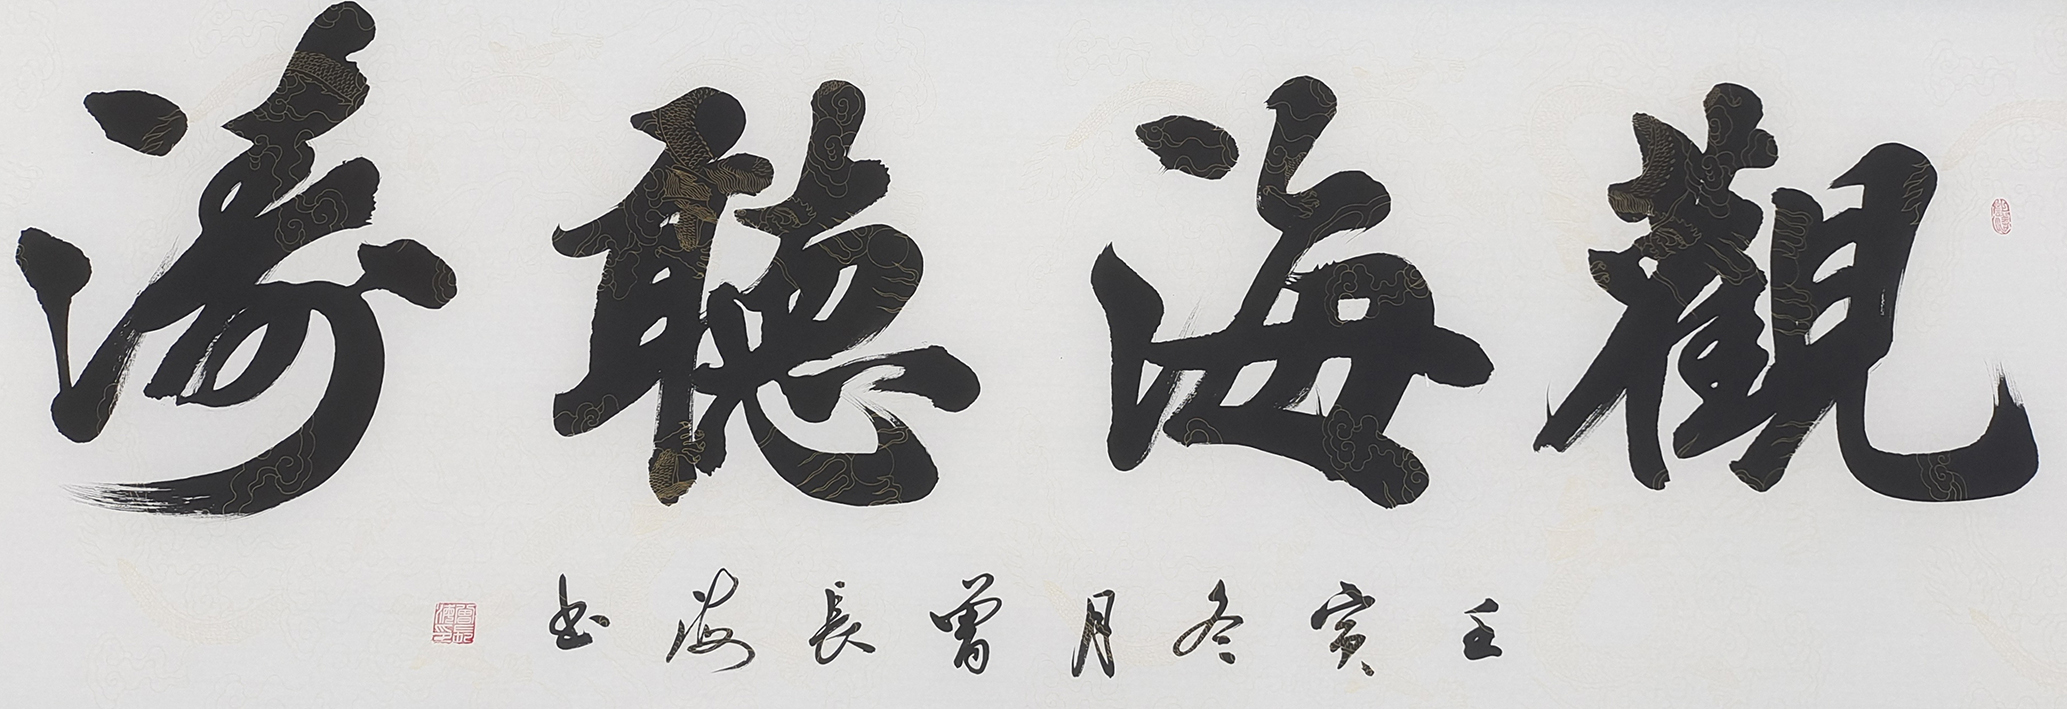 觀海聽濤
壬寅冬月曾長海书